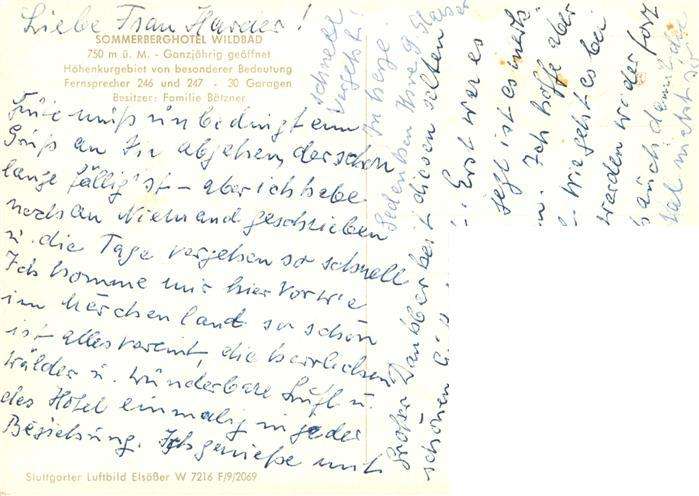 Liebe Frau Harder!
SOMMERBERGHOTEL WILDBAD
750 m ü. M. - Ganzjährig geöffnet
Höhenkurgebiet von besonderer Bedeutung
Fernsprecher 246 und 247 - 30 Garagen
Besitzer: Familie Bätzner
Heute muß unbedingt ein
Gruß an Sie abgehen, der schon
lange fällig ist - aber ich habe
noch an Niemand geschrieben
u. die Tage vergehen so schnell
Ich komme mir hier vor wie
im Märchenland so schön
ist alles vereint, die herrlichen
Wälder u. wunderbare Luft u.
das Hotel einmalig in jeder
Beziehung. Ich genieße mit
Stuttgarter Luftbild Elsäßer W 7216 F/9/2069
großer Dankbarkeit diesen selten
schönen
Gedenken Ihre
In herzl
schnelle
Erst war es
Jetzt ist es
Ich hoffe aber
Wie geht es bei
werden wieder fort
auch